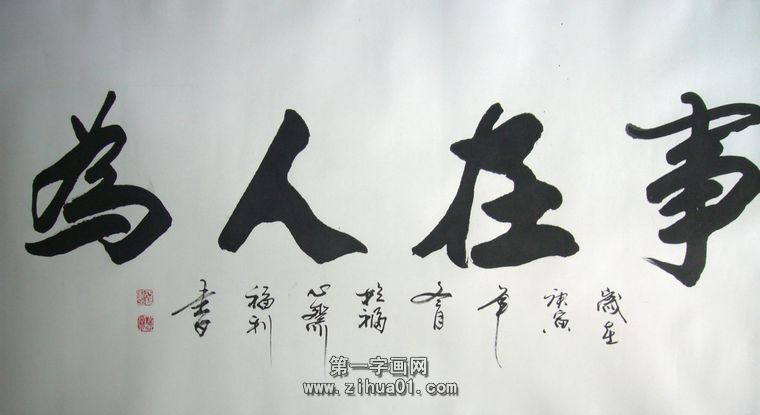 事在人為
歲在庚寅年冬月於福心齋福利書
第一字画网
www.zihua01.com